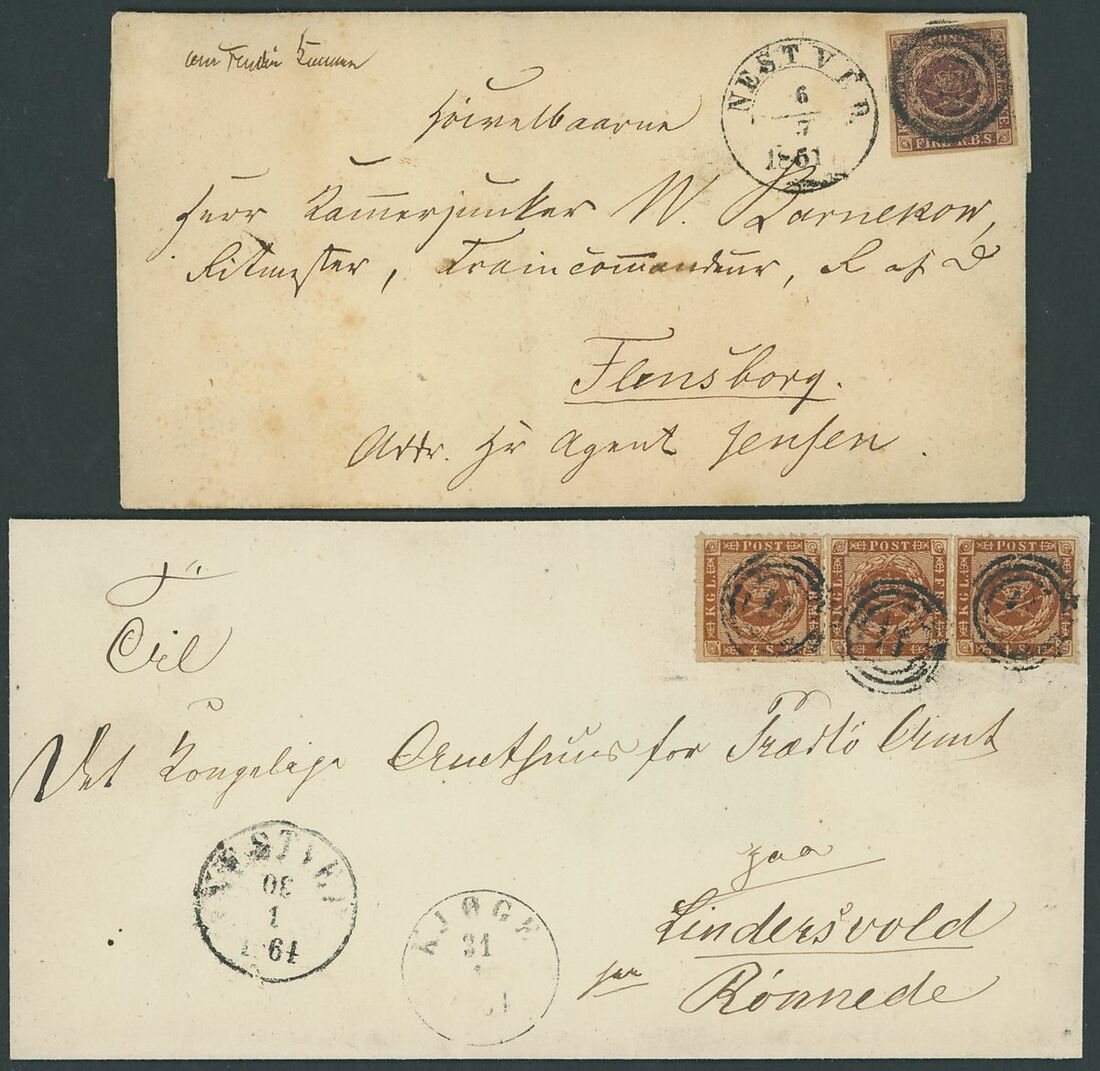 Høivelbaarne
NESTVED
6
7
1861
K
FIRE R.B.S.
Herr Kammerjunker W. Barnekow,
Ritmester, Traincommandeur, R af D
Flensborg.
Addr. Hr Agent Jensen.
POST
KGL.
4 S
POST
KGL. F
4 S
POST
KGL. F
4 S
Til
Det Kongelige Amthuus for Præstø Amt
paa
Lindersvold
per Rönnede
NESTVED
30
1
1864
KJØGE
31